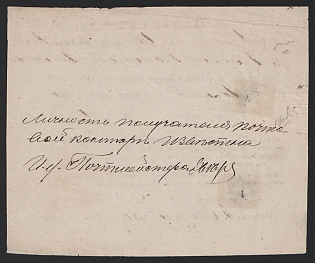 Личность получателя почто
вой конторѣ извѣстна
И.д. Почтмейстера